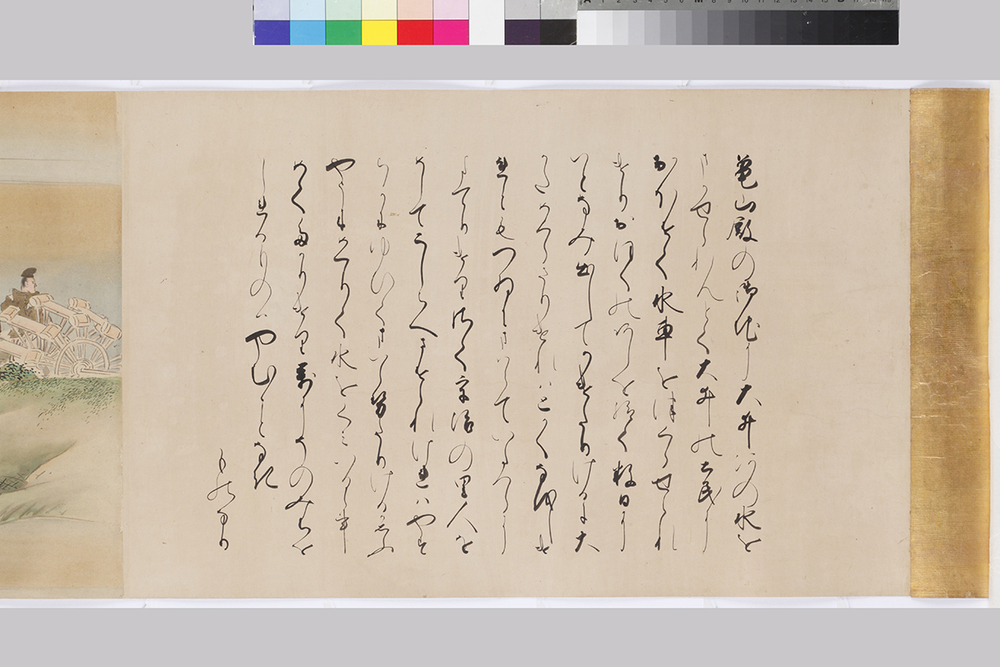 亀山殿の御池に大井河の水を
まかせられんとて大井の土民に
おほせて水車を つくらせられ
けりおほくのあしを給て数日に
いとなみ出してかけたりけるに大
かためくらさりけれはとかくなほしけ
れともつゐにまはらていたつらに
たてりけりさて宇治の里人を
めしてこしらへさせられけれはやす
らかにゆひてまいらせたりけるか思ふ
やうにめくりて水をくみいるゝ事
めてたかりけり万にそのみちを
しれるものはやむことなき
ものなり